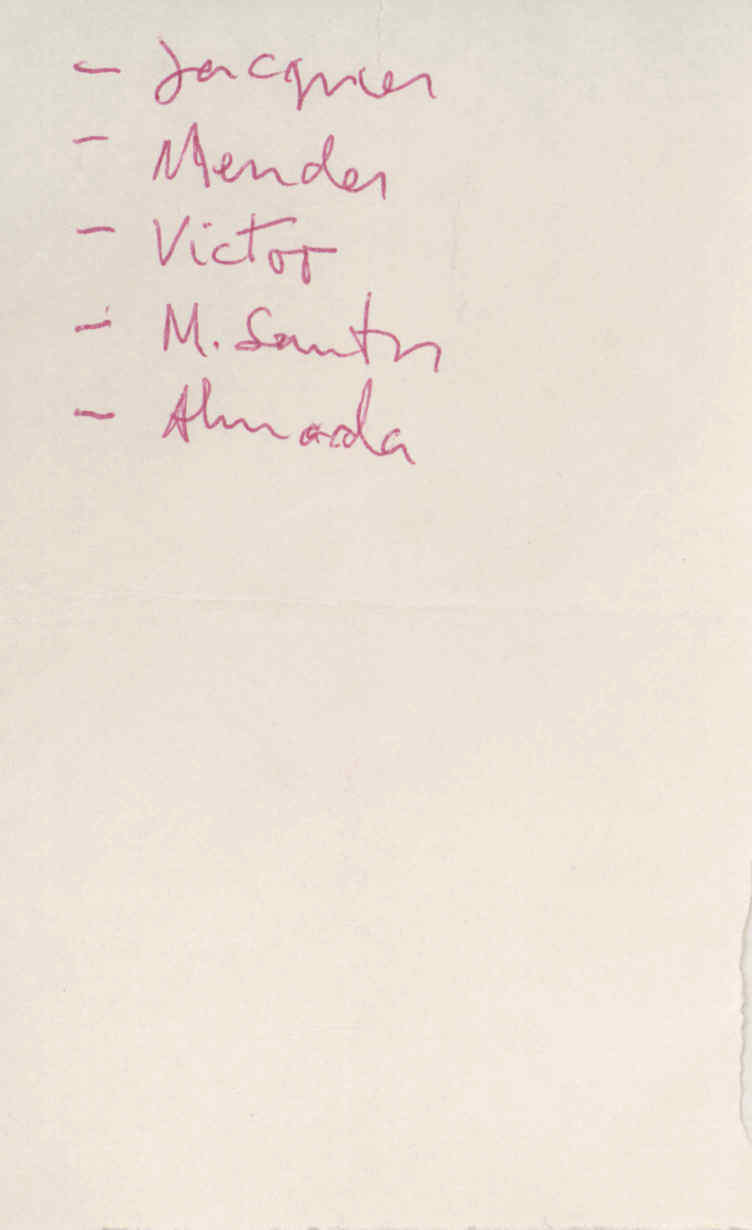 - Jacques
- Mendes
- Victor
- M. Santos
- Almada